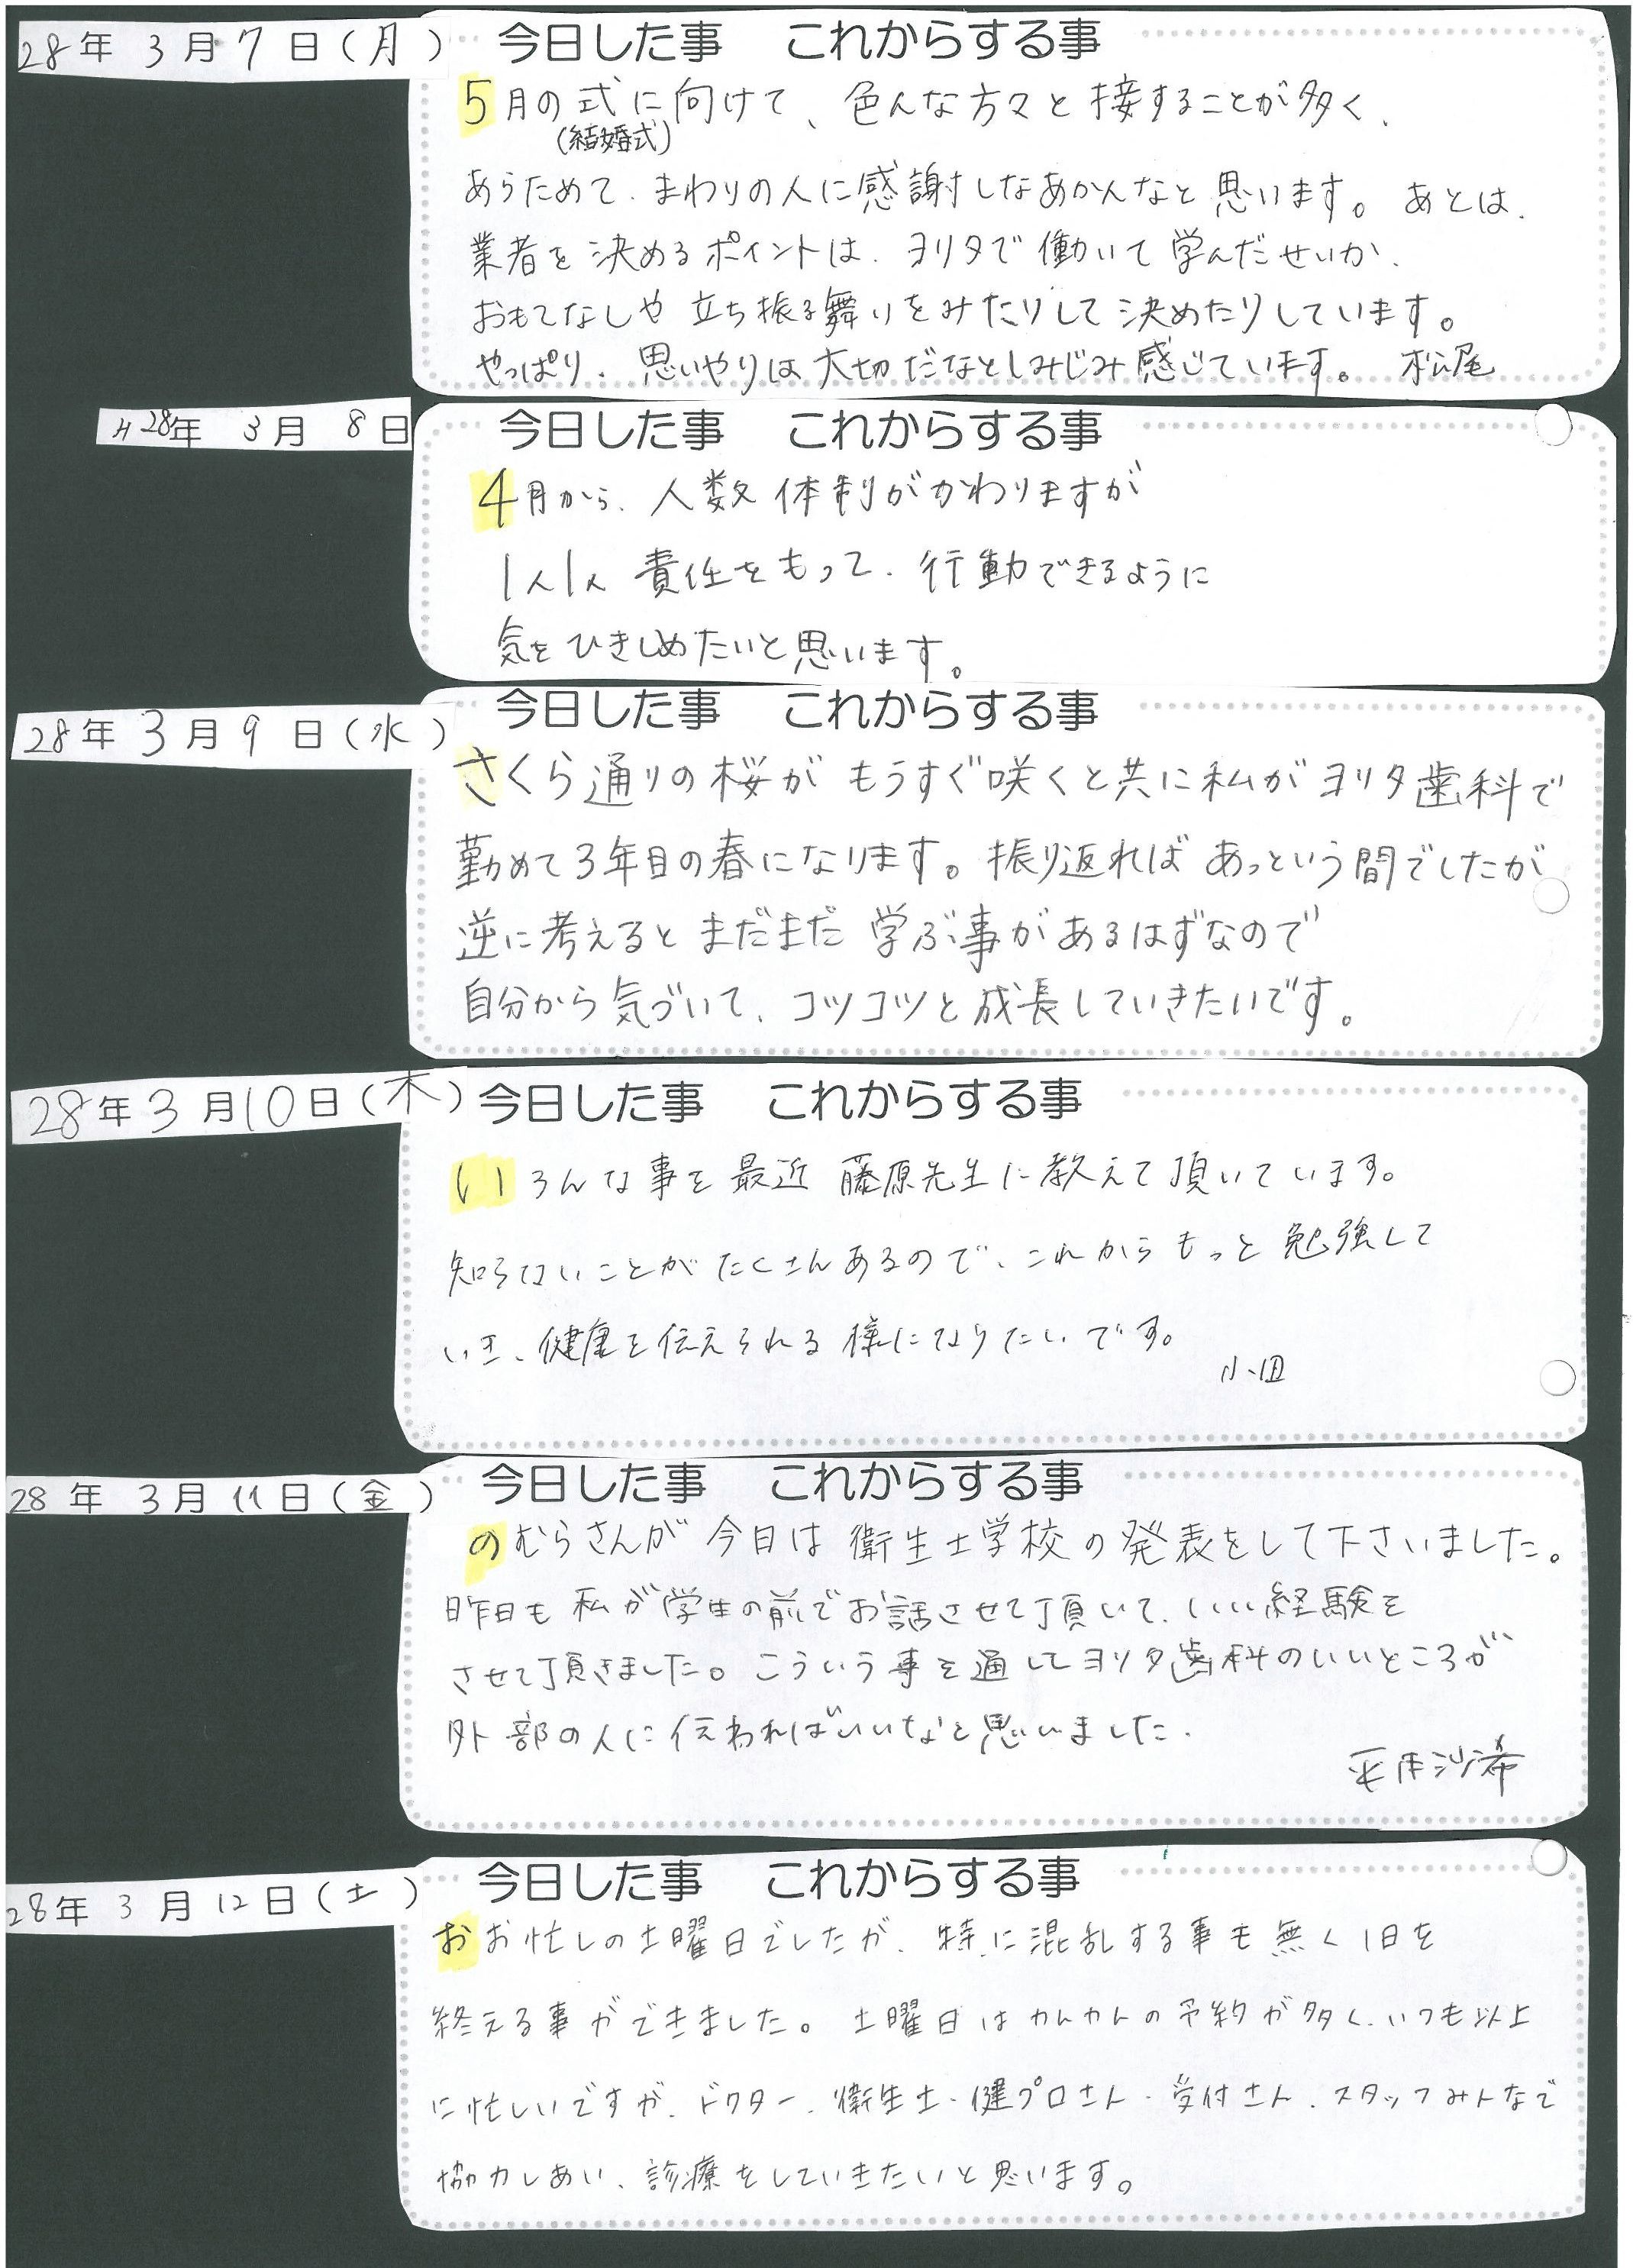 28年 3月 7日(月)
今日した事 これからする事
5月の式に向けて、色んな方々と接することが多く、
(結婚式)
あらためて、まわりの人に感謝しなあかんなと思います。あとは、
業者を決めるポイントは、ヨリタで働いて学んだせいか、
おもてなしや立ち振る舞いをみたりして決めたりしています。
やっぱり、思いやりは大切だなとしみじみ感じています。 松尾
H28年 3月 8日
今日した事 これからする事
4月から、人数体制がかわりますが
1人1人 責任をもって、行動できるように
気をひきしめたいと思います。
28年 3月 9日(水)
今日した事 これからする事
さくら通りの桜が もうすぐ咲くと共に私がヨリタ歯科で
勤めて3年目の春になります。振り返れば あっという間でしたが
逆に考えると まだまだ 学ぶ事があるはずなので
自分から気づいて、コツコツと成長していきたいです。
28年 3月10日(木)
今日した事 これからする事
いろんな事を最近 藤原先生に教えて頂いています。
知らないことがたくさんあるので、これからもっと勉強して
いき、健康を伝えられる様になりたいです。
小田
28年 3月 11日(金)
今日した事 これからする事
のむらさんが今日は衛生士学校の発表をして下さいました。
昨日も私が学生の前でお話させて頂いて、いい経験を
させて頂きました。こういう事を通してヨリタ歯科のいいところが
外部の人に伝わればいいなと思いました。
沙希
28年 3月 12日(土)
今日した事 これからする事
おお忙しの土曜日でしたが、特に混乱する事も無く1日を
終える事ができました。土曜日はカムカムの予約が多く、いつも以上
に忙しいですが、ドクター、衛生士・健プロさん・受付さん、スタッフみんなで
協力しあい、診療をしていきたいと思います。